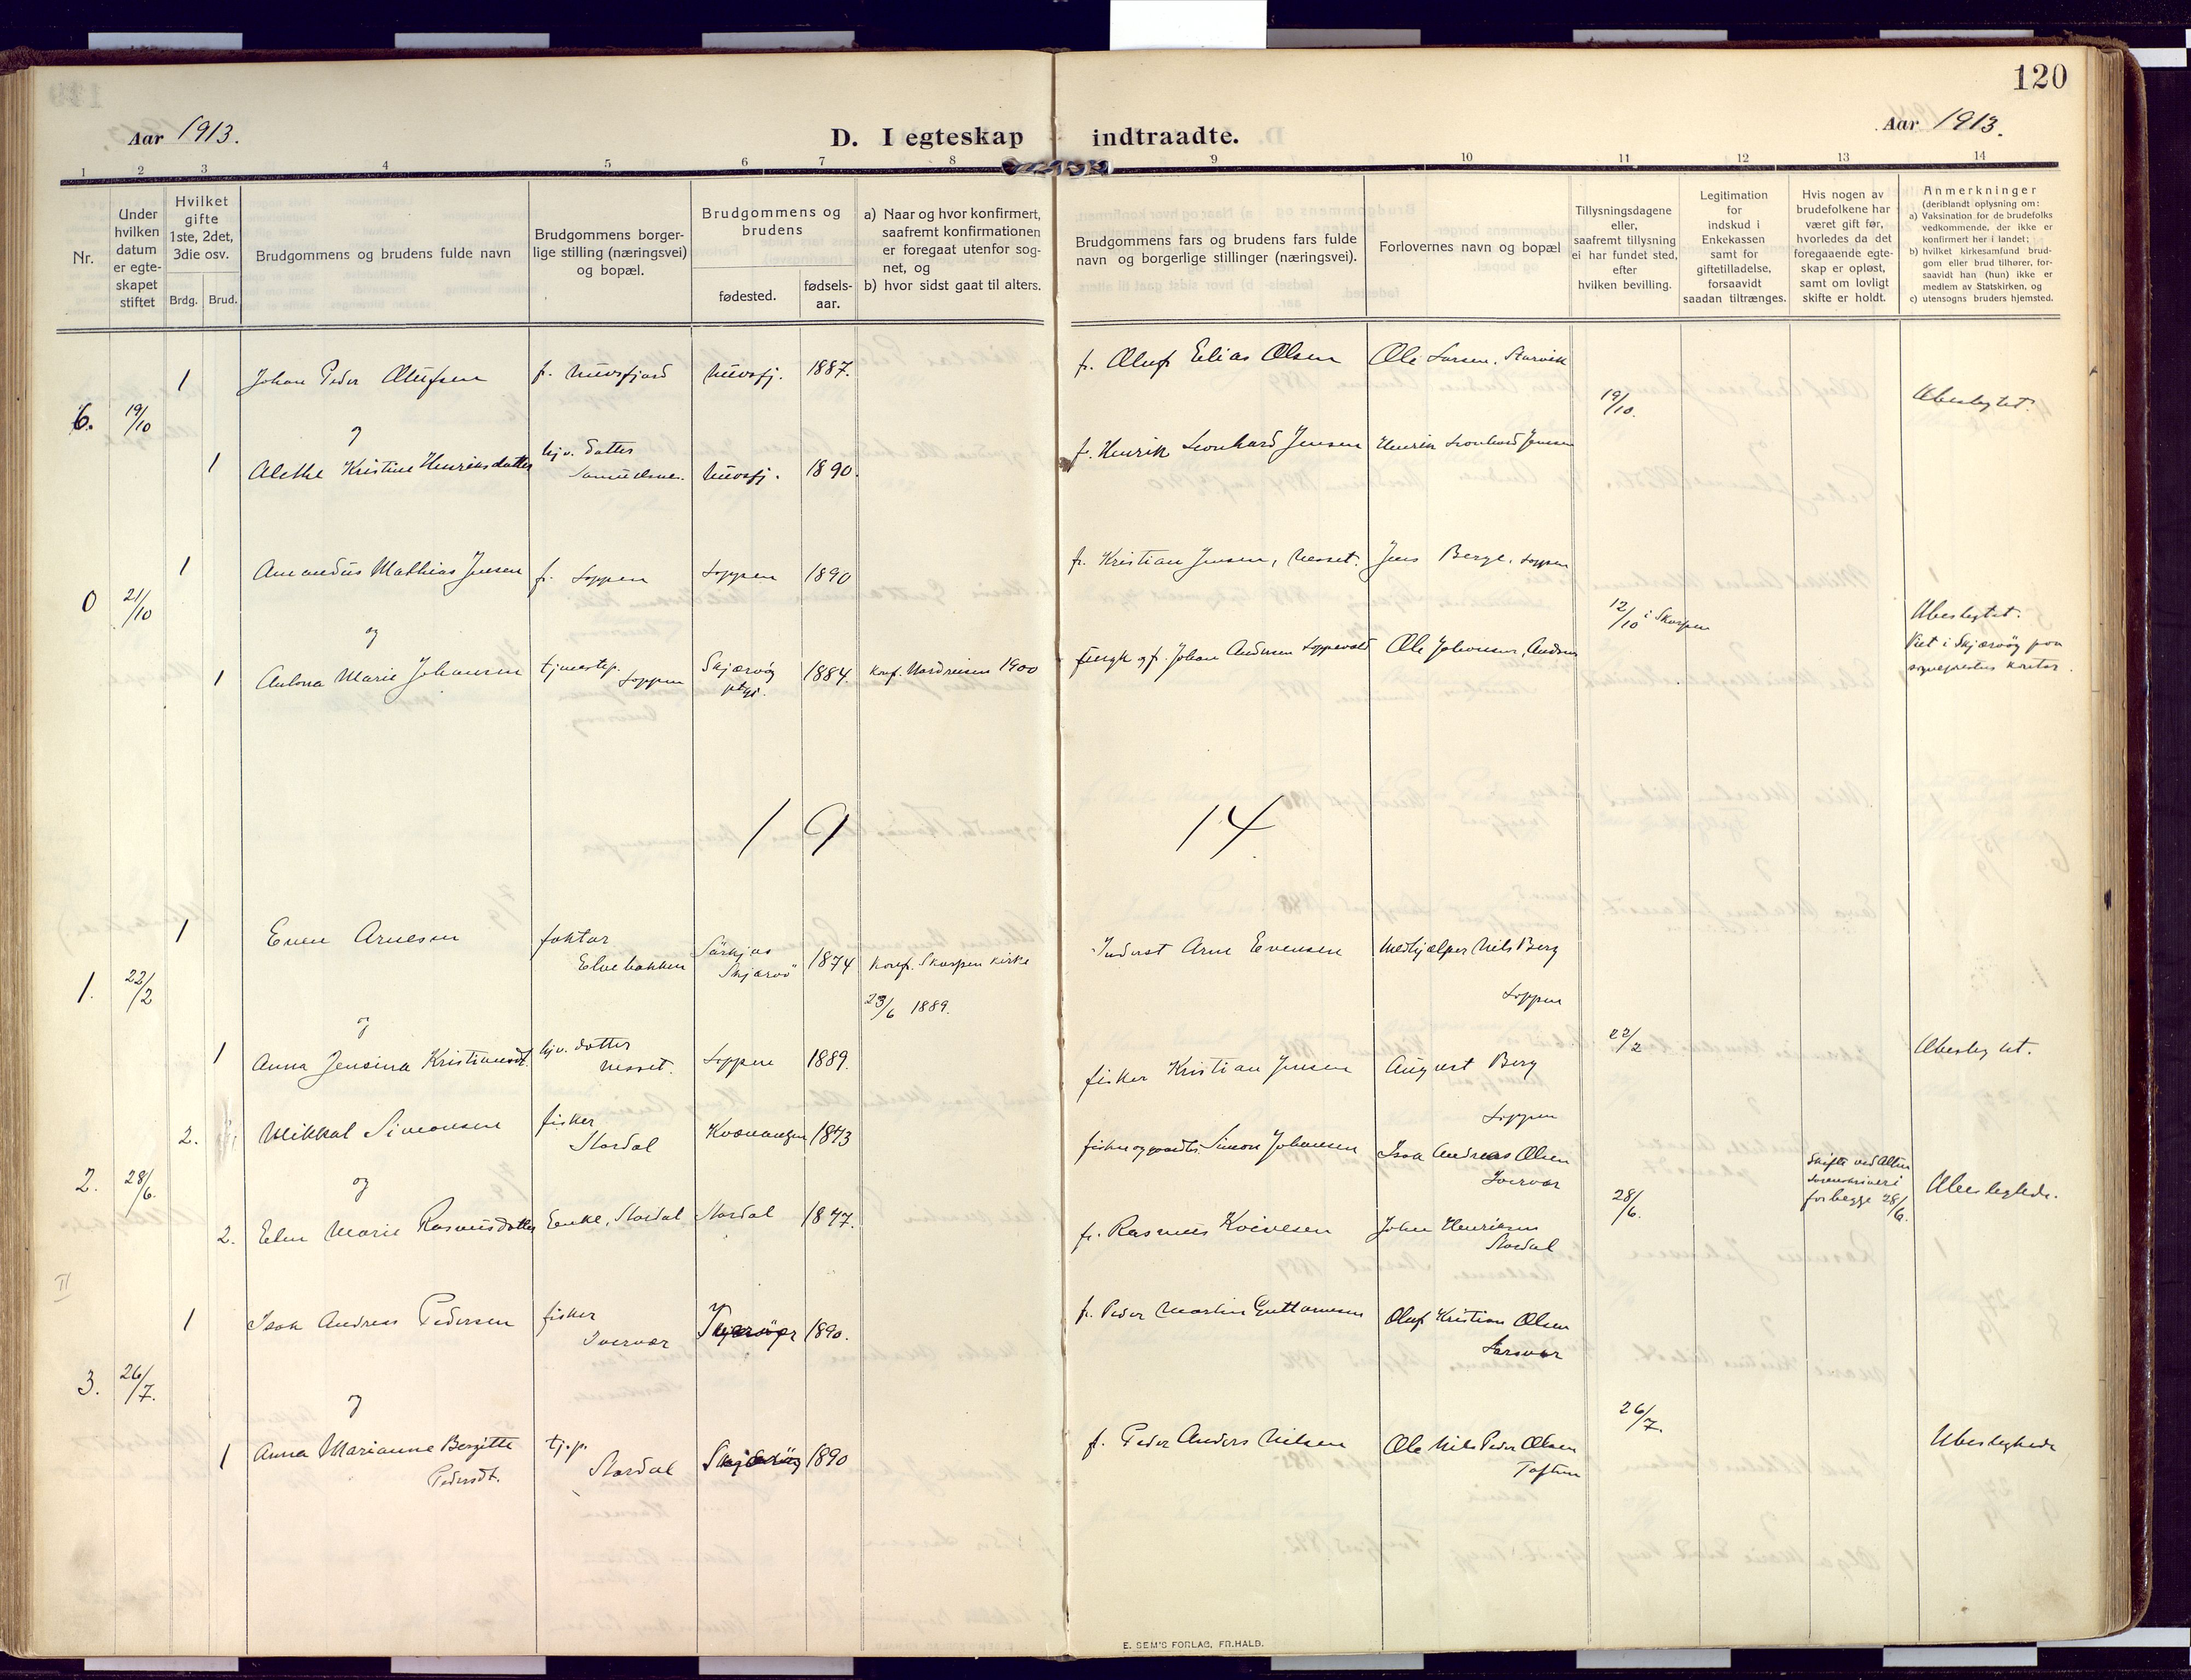 120
Aar 1913.
D. I egteskap indtraadte.
Aar 1913.
1 2 3 4 5 6 7 8 9 10 11 12 13 14
Nr.
Under
hvilken
datum
er egte-
skapet
stiftet
Hvilket
gifte
1ste, 2det,
3die osv.
Brdg. Brud.
Brudgommens og brudens fulde navn
Brudgommens borger-
lige stilling (næringsvei)
og bopæl.
Brudgommens og
brudens
fødested.
fødsels-
aar.
a) Naar og hvor konfirmert,
saafremt konfirmationen
er foregaat utenfor sog-
net, og
b) hvor sidst gaat til alters.
Brudgommens fars og brudens fars fulde
navn og borgerlige stillinger (næringsvei).
Forlovernes navn og bopæl
Tillysningsdagene
eller,
saafremt tillysning
ei har fundet sted,
efter
hvilken bevilling.
Legitimation
for
indskud i
Enkekassen
samt for
giftetilladelse,
forsaavidt
saadan tiltrænges.
Hvis nogen av
brudefolkene har
været gift før,
hvorledes da det
foregaaende egte-
skap er opløst,
samt om lovligt
skifte er holdt.
Anmerkninger
(deriblandt oplysning om:
a) Vaksination for de brudefolks
vedkommende, der ikke er
konfirmert her i landet;
b) hvilket kirkesamfund brud-
gom eller brud tilhører, for-
saavidt han (hun) ikke er
medlem av Statskirken, og
c) utensogns bruders hjemsted.
1 Johan Peder Olufsen f. Nuvsfjord Nuvsfj. 1887. fr. Oluf Elias Olsen Ole Larsen, Starvik
6. 19/10 og 19/10. Ubeslegtet.
1 Alethe Kristine Henriksdatter hjv. datter
Nuvsfj. 1890. f. Henrik Leonhard Jensen Henrik Leonhard Jensen
1 Amandus Mathias Jensen f. Loppen Loppen 1890 fr. Kristian Jensen, Nesset. Jens Berge, Loppen
0 21/10 og 12/10 i Skorpen Ubeslegtet.
Viet i Skjærvøy paa
sogneprestens kontor.
1 Antona Marie Johansen tjenestep.
Loppen Skjærvøy
ptgj. 1884. Konf. Nordreisen 1900 Johan Andersen Ole Johansen,
19 14
1 Even Arnesen faktor
Elvebakken
Skjærvø 1874 Konf. Skorpen kirke
23/6 1889. Arne Evensen Medhjælper Nils Berg
Loppen
1. 22/2 og 22/2 Ubeslegtet.
1 Anna Jensina Kristiansdt. hjv. datter
Nesset. Loppen 1889. fisker Kristian Jensen August Berg
Loppen
2. Mikkal Simonsen fisker
Stordal Kvænangen 1873 Simon Johansen Isak Andreas Olsen
2. 28/6. og 28/6. Skifte ved Alten
Sorenskriveri
for begge 28/6. Ubeslegtede.
2. Elen Marie Rasmusdatter Enke, Stordal Stordal 1877. fr. Rasmus Koivesen John Henriksen
Stordal
II
1 Isak Andreas Pedersen fisker
1890. fr. Peder Martin Guttormsen Oluf Kristian Olsen
3. 26/7. og 26/7. Ubeslegtede
1 Anna Marianne Bergitte
Pedersdt. tj.p.
Stordal Skjærvøy 1890 f. Peder Anders Nilsen Ole Nils Peder Olsen
Toften
E. SEM'S FORLAG, FR.HALD.